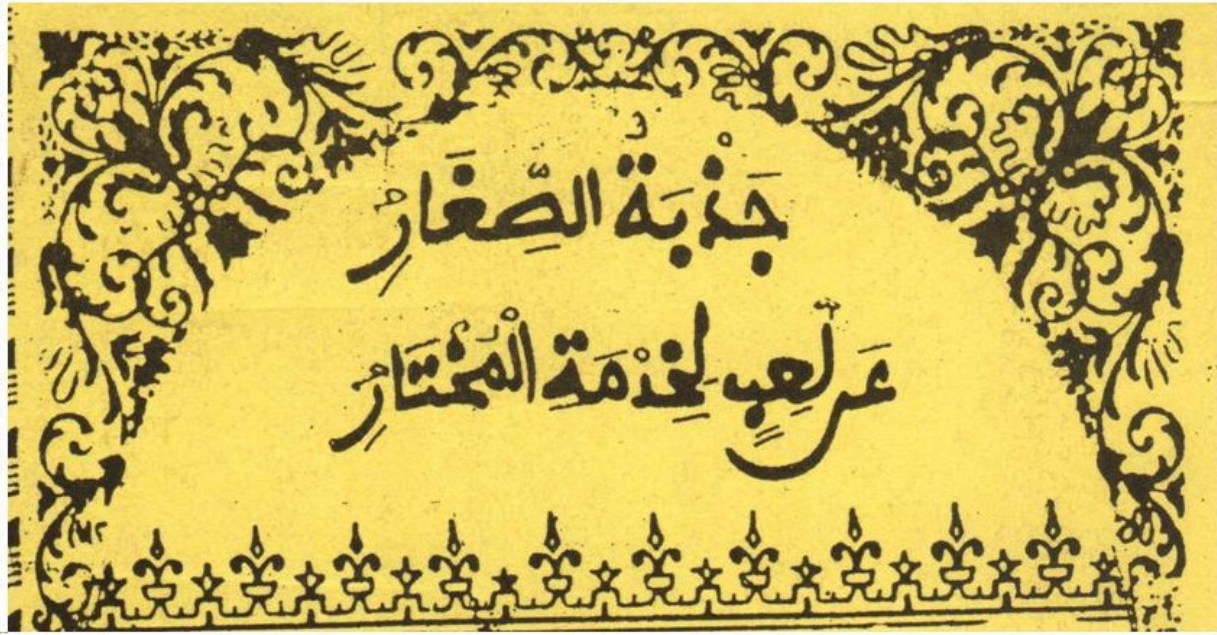 جَذْبَةُ الصِّغَارِ
عَن لَّعِبٍ لِخِدْمَةِ الْمُخْتَارِ